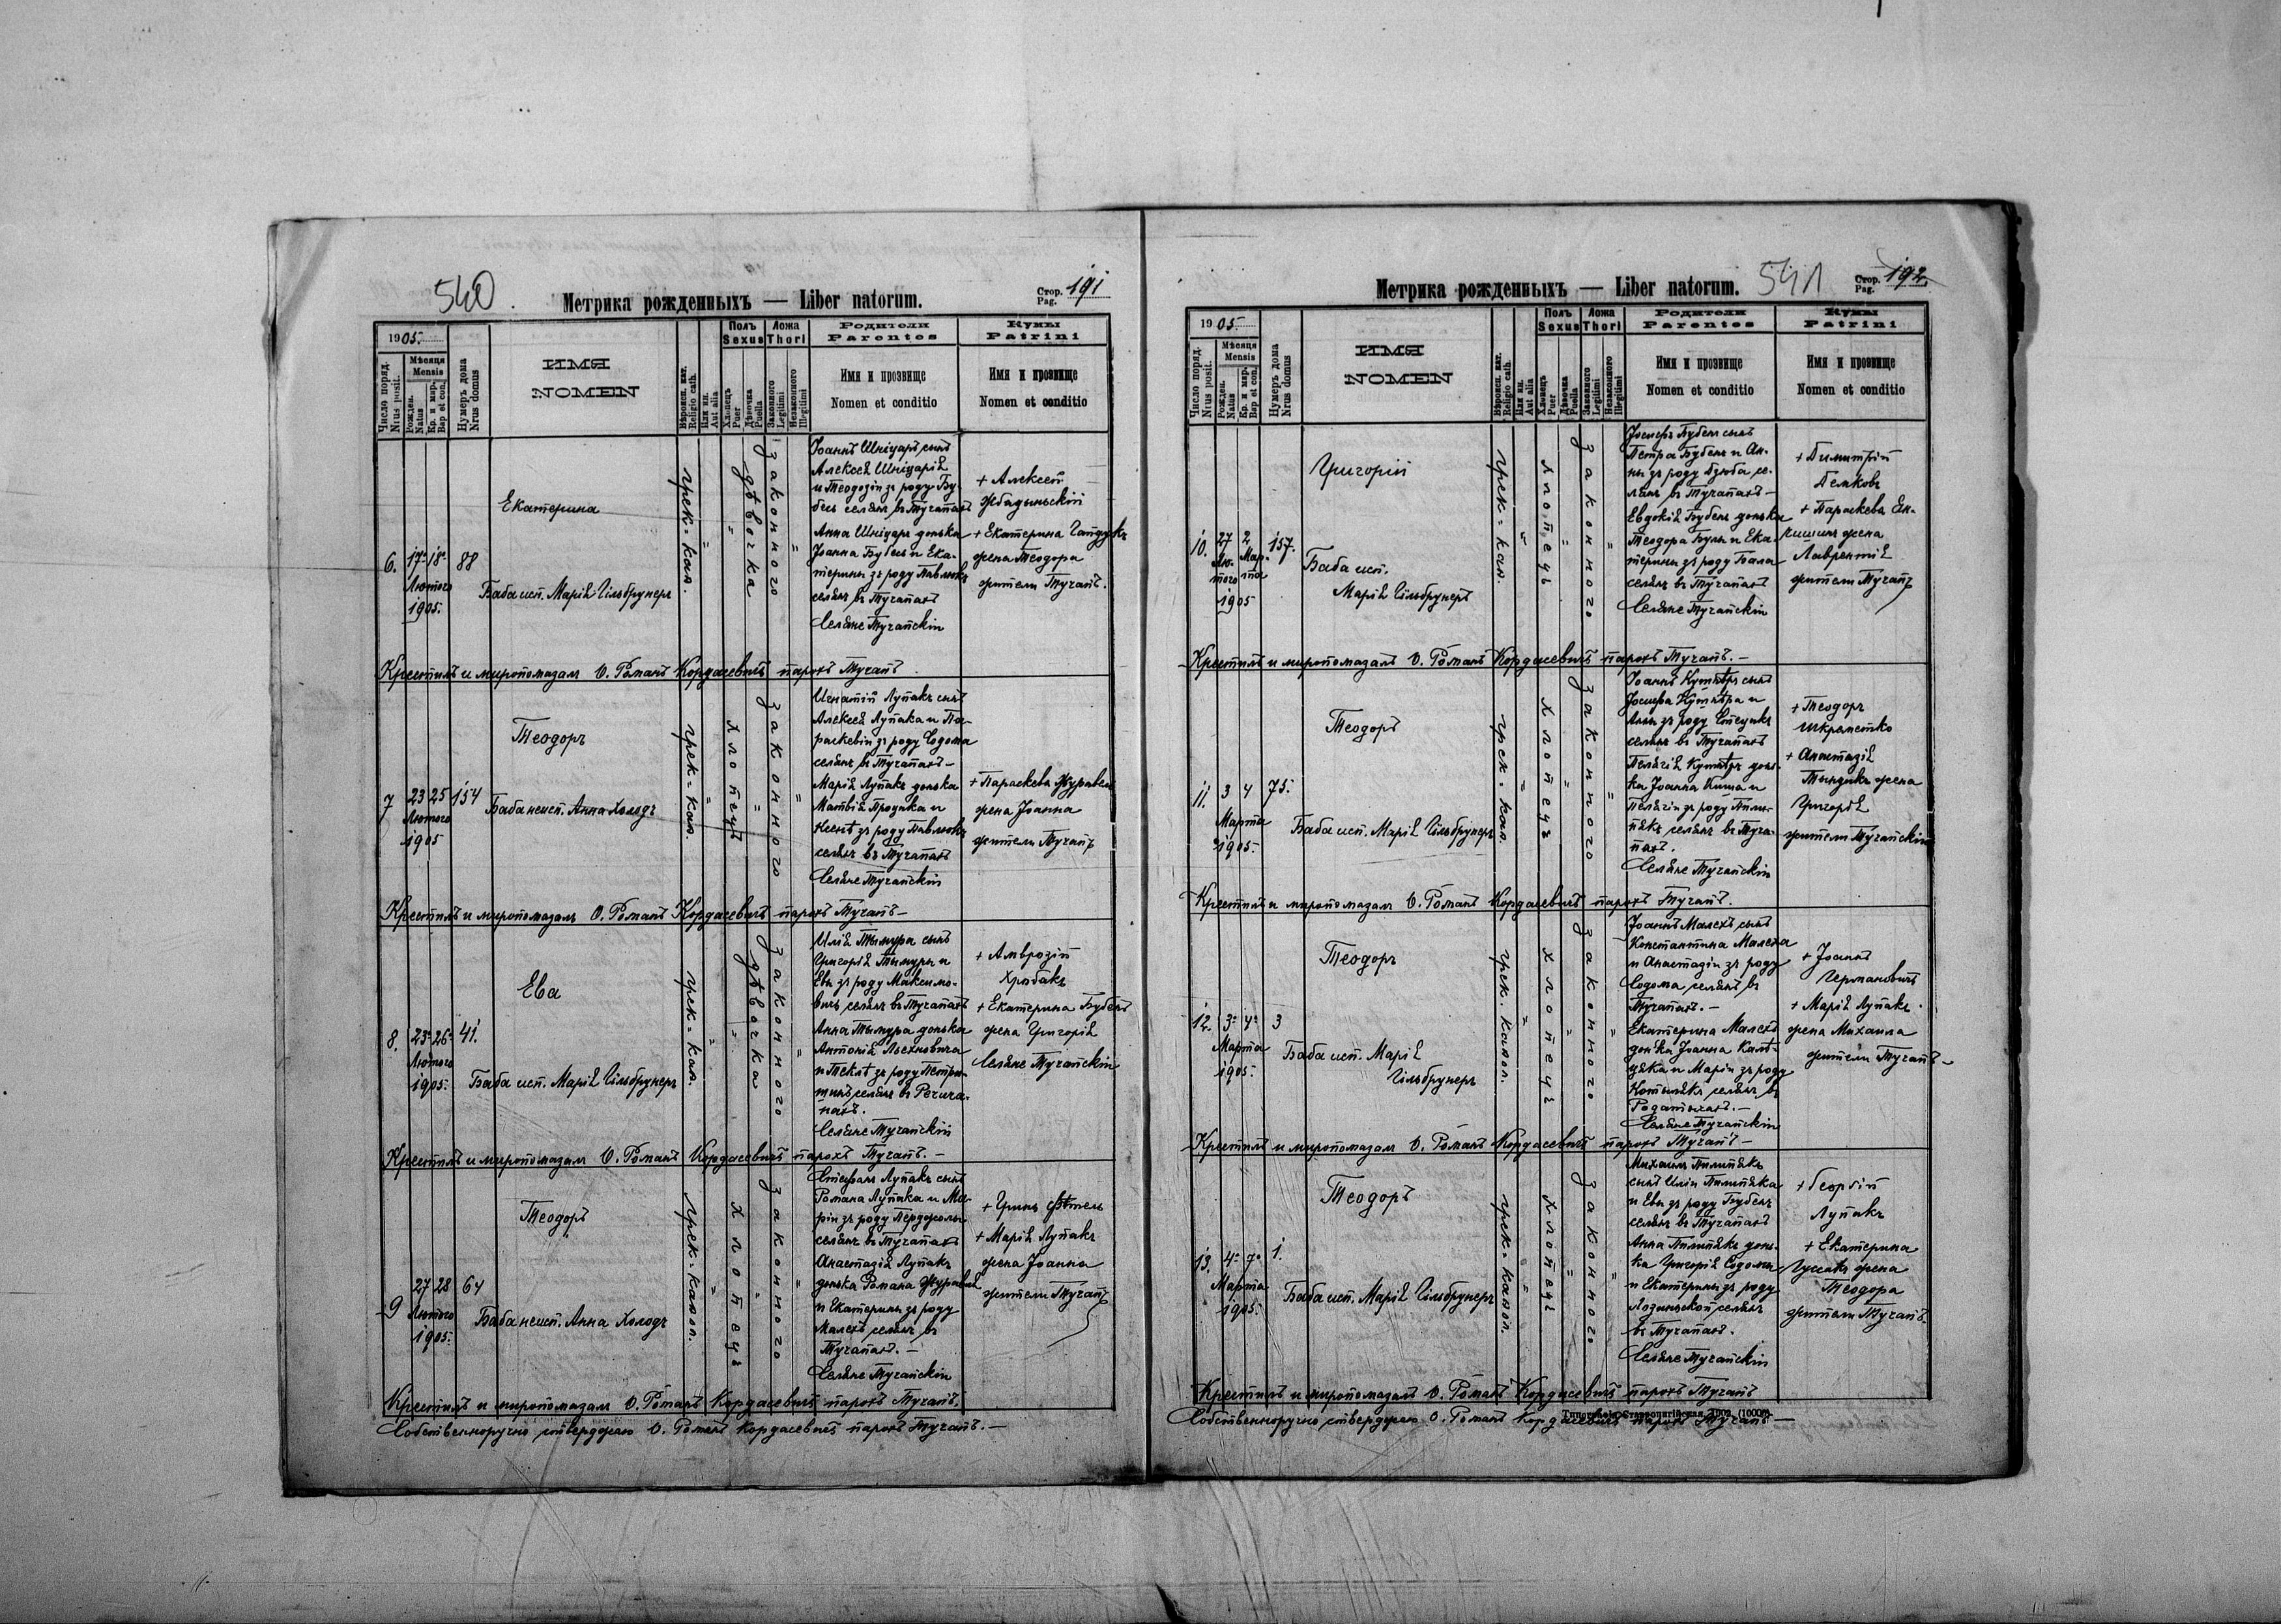 540.
Метрика рожденныхъ — Liber natorum.
Стор. Pag. 191
1905.
Число поряд. Nrus posit.
Мѣсяця Mensis
Рожден. Natus
Кр. и мир. Bap et con.
Нумеръ дома Nrus domus
ИМЯ
NOMEN
Вѣроисп. кат. Religio cath.
Или ин. Aut alia
Полъ Sexus
Хлопецъ Puer
Дѣвочка Puella
Ложа Thori
Законного Legitimi
Незаконного Illegitimi
Родители
Parentes
Имя и прозвище
Nomen et conditio
Кумы
Patrini
Имя и прозвище
Nomen et conditio
6.
17. 18.
Лютого
1905.
88
Екатерина
Баба исп. Марія Гільбрунеръ
грек=кат.
дѣвочка
законного
Іоаннъ Шніцаръ сынъ
Алексея Шніцарів
и Теодозіи зъ роду Бу-
бесь селянъ въ Тучапахъ
Анна Шніцаръ донька
Іоанна Бубесь и Ека-
терины зъ роду Павлюкъ
селянъ въ Тучапахъ
Селяне Тучапскіи
+ Алексей
+ Екатерина
жена Теодора
жители Тучапъ.
Крестилъ и миропомазалъ О. Романъ Кордасевичъ парохъ Тучапъ
7
23 25
Лютого
1905
154
Теодоръ
Баба неисп. Анна Холодъ
грек=кат.
хлопецъ
законного
Игнатій Лупакъ сынъ
Алексея Лупака и Па-
раскевіи зъ роду Содома
селянъ въ Тучапахъ —
Марія Лупакъ донька
Матвія Процика и
зъ роду Павлюкъ
селянъ въ Тучапахъ
Селяне Тучапскіи
+ Параскева Журавель
жена Іоанна
жители Тучапъ
Крестилъ и миропомазалъ О. Романъ Кордасевичъ парохъ Тучапъ —
8.
23. 26.
Лютого
1905.
41.
Ева
Баба исп. Марія Гільбрунеръ
грек=кат.
дѣвочка
законного
Илія Тымура сынъ
Григорія Тымуры и
Евы зъ роду Максимо-
вичъ селянъ въ Тучапахъ
Анна Тымура донька
Антонія Ляхновича
и Теклѣ зъ роду Петри-
селянъ въ Речича-
нахъ.
Селяне Тучапскіи
+ Амврозій
Хрибакъ
+ Екатерина Бубенъ
жена Григорія
Селяне Тучапскіи
Крестилъ и миропомазалъ О. Романъ Кордасевичъ парохъ Тучапъ. —
9
27 28
Лютого
1905.
64
Теодоръ
Баба неисп. Анна Холодъ
грек=катол.
хлопецъ
законного
Стефанъ Лупакъ сынъ
Романа Лупака и Ма-
ріи зъ роду
селянъ въ Тучапахъ
Анастазія Лупакъ
донька Романа Журавля
и Екатерины зъ роду
Малехъ селянъ въ
Тучапахъ. —
Селяне Тучапскіи
+ Гринь
+ Марія Лупакъ
жена Іоанна
жители Тучапъ
Крестилъ и миропомазалъ О. Романъ Кордасевичъ парохъ Тучапъ.
Собственноручно ствердежаю О. Романъ Кордасевичъ парохъ Тучапъ. —
Метрика рожденныхъ — Liber natorum.
541
Стор. Pag. 192
1905.
Число поряд. Nrus posit.
Мѣсяця Mensis
Рожден. Natus
Кр. и мир. Bap et con.
Нумеръ дома Nrus domus
ИМЯ
NOMEN
Вѣроисп. кат. Religio cath.
Или ин. Aut alia
Полъ Sexus
Хлопецъ Puer
Дѣвочка Puella
Ложа Thori
Законного Legitimi
Незаконного Illegitimi
Родители
Parentes
Имя и прозвище
Nomen et conditio
Кумы
Patrini
Имя и прозвище
Nomen et conditio
10.
27 2
Лю- Мар-
того та
1905
157.
Григорій
Баба исп.
Марія Гільбрунеръ
грек=кат.
хлопецъ
законного
Іосифъ Бубенъ сынъ
Петра Бубенъ и Ан-
ны зъ роду Бзюба се-
лянъ въ Тучапахъ —
Евдокія Бубенъ донька
Теодора Булы и Ека-
терины зъ роду Бала
селянъ въ Тучапахъ
Селяне Тучапскіи
+ Димитрій
+ Параскева
жена
Лаврентія
жители Тучапъ
Крестилъ и миропомазалъ О. Романъ Кордасевичъ парохъ Тучапъ. —
11.
3 4
Марта
1905.
75.
Теодоръ
Баба исп. Марія Гільбрунеръ
грек=кат.
хлопецъ
законного
Іоаннъ Кутнѣръ сынъ
Іосифа Кутнѣра и
Анны зъ роду Стецикъ
селянъ въ Тучапахъ
Пелягія Кутнѣръ донь-
ка Іоанна Киша и
Пелягіи зъ роду Пили-
пякъ селянъ въ Туча-
пахъ.
Селяне Тучапскіи
+ Теодоръ
Шкраметко
+ Анастазія
Тындикъ жена
Григорія
жители Тучапскіи
Крестилъ и миропомазалъ О. Романъ Кордасевичъ парохъ Тучапъ.
12.
3. 4.
Марта
1905.
3
Теодоръ
Баба исп. Марія
Гільбрунеръ
грек. катол.
хлопецъ
законного
Іоаннъ Малехъ сынъ
Константина Малеха
и Анастазіи зъ роду
Содома селянъ въ
Тучапахъ. —
Екатерина Малехъ
донька Іоанна Калѣ-
цяка и Маріи зъ роду
Котылякъ селянъ въ
Родатычахъ. —
Селяне Тучапскіи
+ Іоаннъ
Германовичъ
+ Марія Лупакъ
жена Михаила
жители Тучапъ —
Крестилъ и миропомазалъ О. Романъ Кордасевичъ парохъ Тучапъ —
13.
4. 7.
Марта
1905.
1.
Теодоръ
Баба исп. Марія Гільбрунеръ
грек=катол.
хлопецъ
законного
Михаилъ Пилипякъ
сынъ Иліи Пилипяка
и Евы зъ роду Бубенъ
селянъ въ Тучапахъ
Анна Пилипякъ донь-
ка Григорія Содомы
и Екатерины зъ роду
Лозиньской селянъ
въ Тучапахъ.
Селяне Тучапскіи
+ Георгій
Лупакъ
+ Екатерина
Гусакъ жена
Теодора
жители Тучапъ.
Крестилъ и миропомазалъ О. Романъ Кордасевичъ парохъ Тучапъ
Собственноручно ствердежаю О. Романъ Кордасевичъ парохъ Тучапъ —